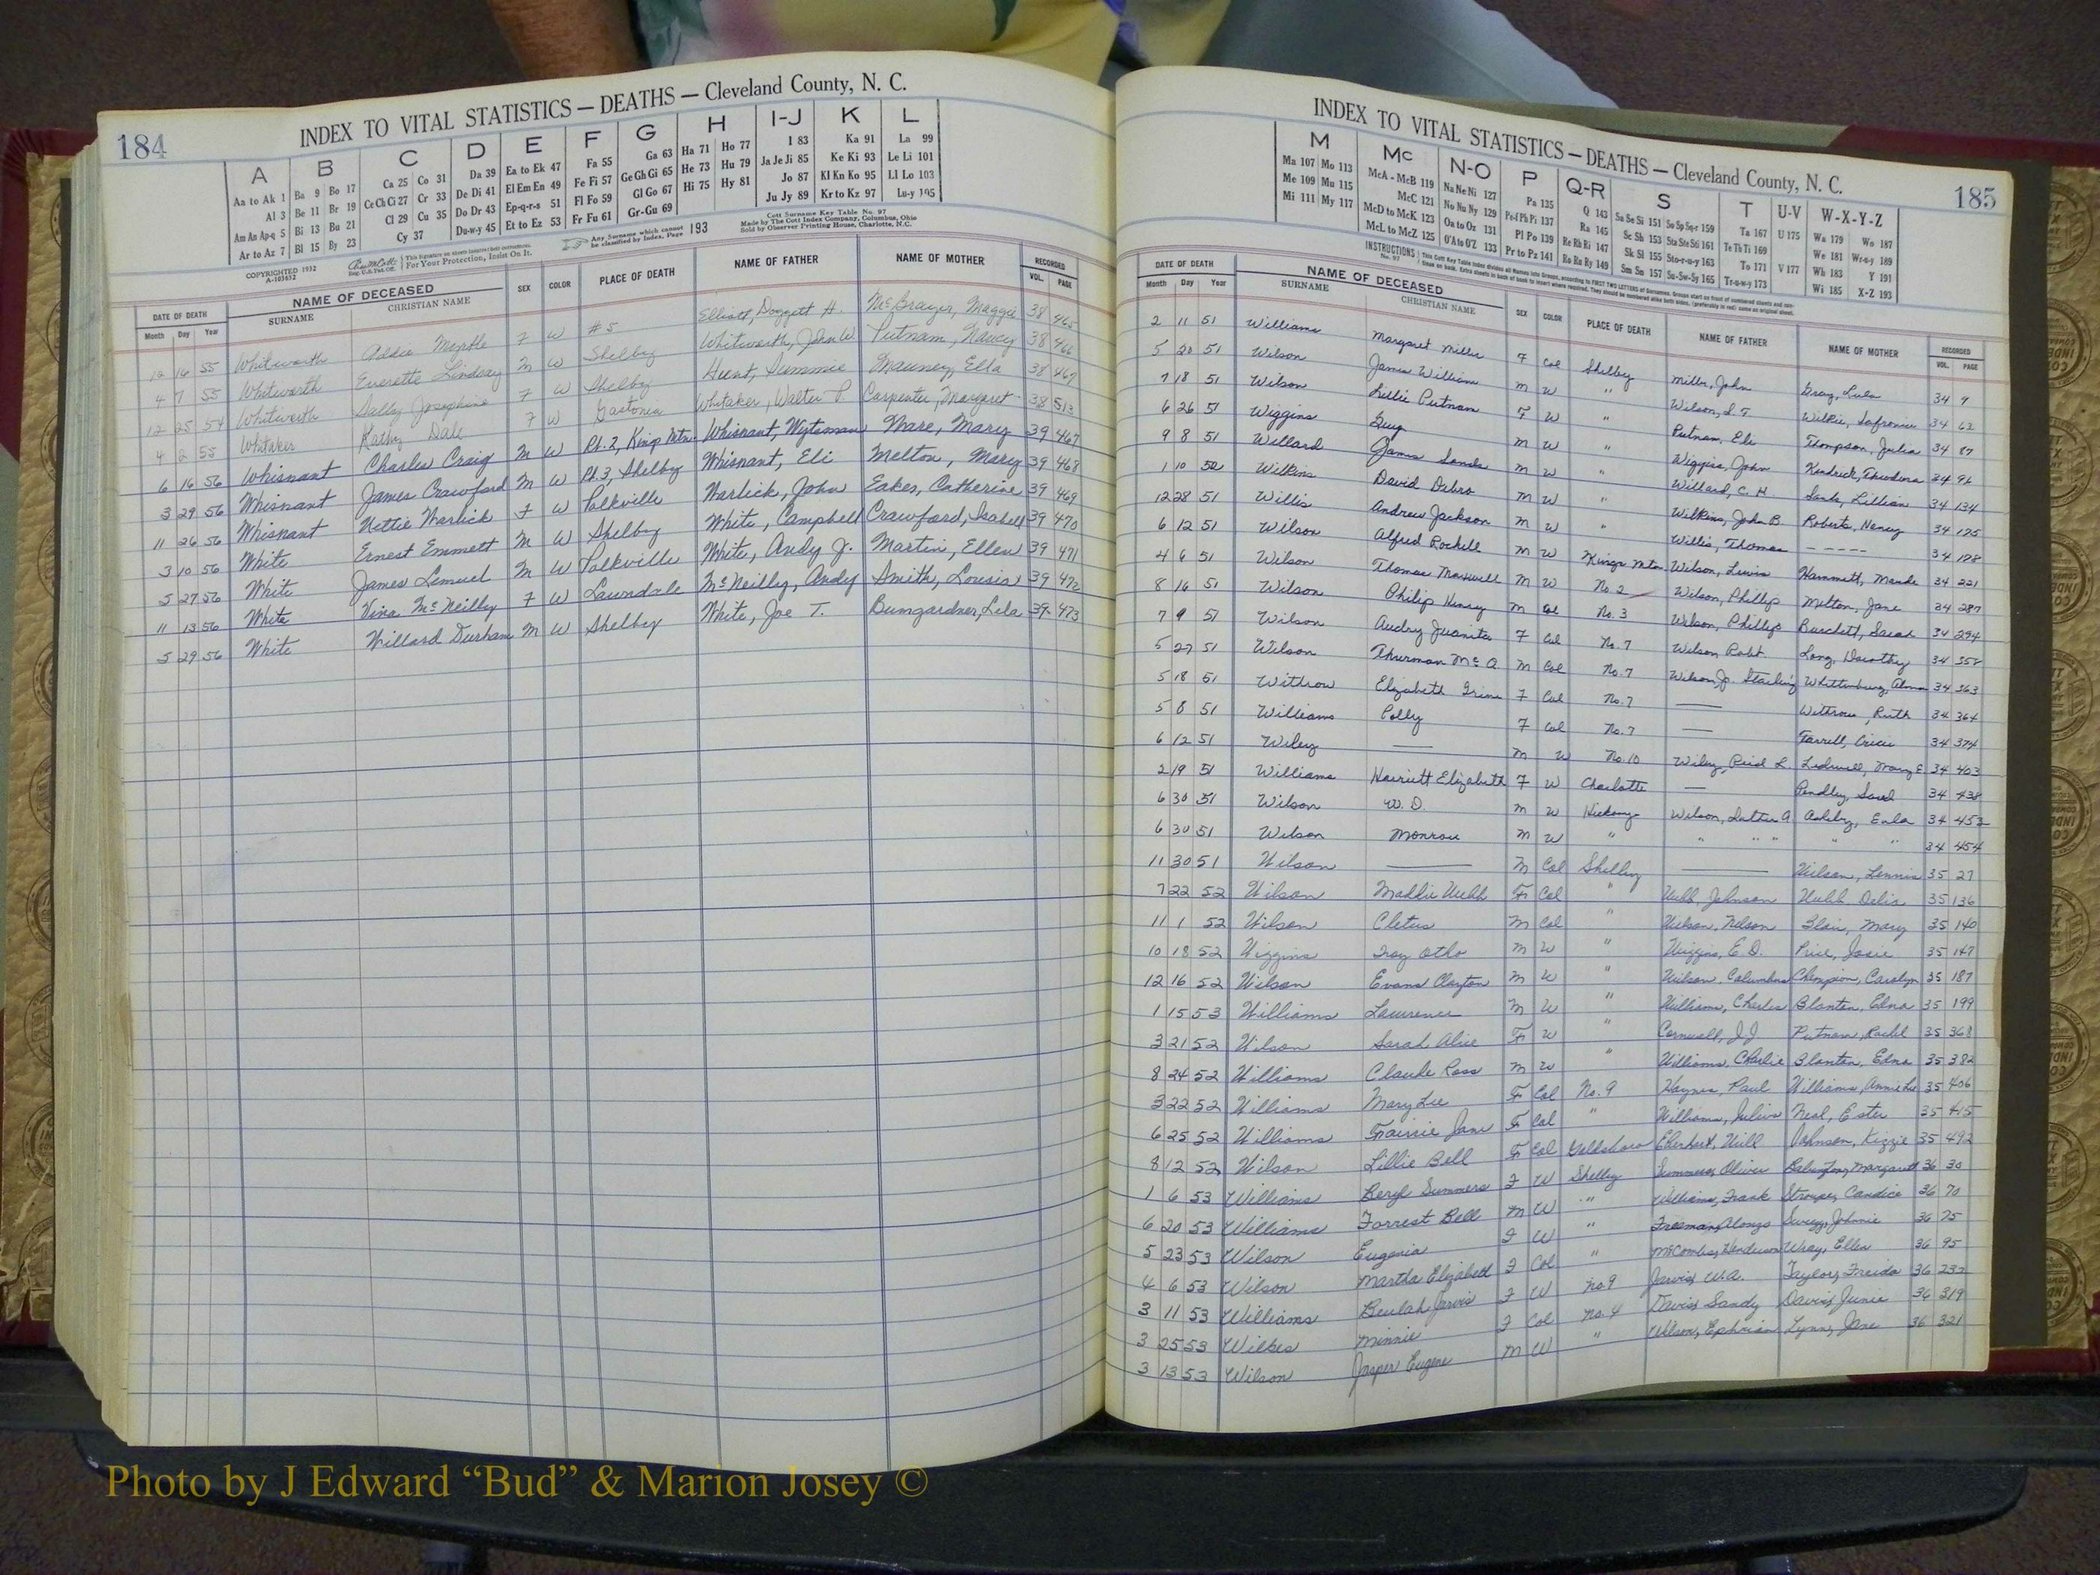 184
INDEX TO VITAL STATISTICS — DEATHS — Cleveland County, N. C.
A B C D E F G H I-J K L
Aa to Ak 1 Ba 9 Bo 17 Ca 25 Co 31 Da 39 Ea to Ek 47 Fa 55 Ga 63 Ha 71 Ho 77 I 83 Ka 91 La 99
Al 3 Be 11 Br 19 Ce Ch Ci 27 Cr 33 De Di 41 El Em En 49 Fe Fi 57 Ge Gh Gi 65 He 73 Hu 79 Ja Je Ji 85 Ke Ki 93 Le Li 101
Am An Ap-q 5 Bi 13 Bu 21 Cl 29 Cu 35 Do Dr 43 Ep-q-r-s 51 Fl Fo 59 Gl Go 67 Hi 75 Hy 81 Jo 87 Kl Kn Ko 95 Ll Lo 103
Ar to Az 7 Bl 15 By 23 Cy 37 Du-w-y 45 Et to Ez 53 Fr Fu 61 Gr-Gu 69 Ju Jy 89 Kr to Kz 97 Lu-y 105
COPYRIGHTED 1932
A-103632
This signature on sheets insures their correctness.
For Your Protection, Insist On It.
Any Surname which cannot be classified by Index, Page 193
Cott Surname Key Table No. 97
Made by The Cott Index Company, Columbus, Ohio
Sold by Observer Printing House, Charlotte, N.C.
DATE OF DEATH NAME OF DECEASED SEX COLOR PLACE OF DEATH NAME OF FATHER NAME OF MOTHER RECORDED
Month Day Year SURNAME CHRISTIAN NAME VOL. PAGE
12 16 55 Whitworth Addie Myrtle F W #5 Elliott, Doggett H. McBrayer, Maggie 38 465
4 7 55 Whitworth Everette Lindsay M W Shelby Whitworth, John W Putnam, Nancy 38 466
12 25 54 Whitworth Sally Josephine F W Shelby Hunt, Summie Mauney, Ella 38 467
4 2 55 Whitaker Kathy Dale F W Gastonia Whitaker, Walter P. Carpenter, Margaret 38 513
6 16 56 Whisnant Charles Craig M W Rt. 2, Kings Mtn. Whisnant, Wytsman Ware, Mary 39 467
3 29 56 Whisnant James Crawford M W Rt 3, Shelby Whisnant, Eli Melton, Mary 39 468
11 26 56 Whisnant Nettie Warlick F W Polkville Warlick, John Eaker, Catherine 39 469
3 10 56 White Ernest Emmett M W Shelby White, Campbell Crawford, Isabell 39 470
5 27 56 White James Lemuel M W Polkville White, Andy J. Martin, Ellen 39 471
11 13 56 White Vina McNeilly F W Lawndale McNeilly, Andy Smith, Lousia 39 472
5 29 56 White Willard Durham M W Shelby White, Joe T. Bumgardner, Lela 39 473
185
INDEX TO VITAL STATISTICS — DEATHS — Cleveland County, N. C.
M Mc N-O P Q-R S T U-V W-X-Y-Z
Ma 107 Mo 113 McA - McB 119 Na Ne Ni 127 Pa 135 Q 143 Sa Se Si 151 So Sp Sq-r 159 Ta 167 U 175 Wa 179 Wo 187
Me 109 Mu 115 McC 121 No Nu Ny 129 Pe-f Ph Pi 137 Ra 145 Sc Sh 153 Sta Ste Sti 161 Te Th Ti 169 We 181 Wr-u-y 189
Mi 111 My 117 McD to McK 123 Oa to Oz 131 Pl Po 139 Re Rh Ri 147 Sk Sl 155 Sto-r-u-y 163 To 171 V 177 Wh 183 Y 191
McL to McZ 125 O'A to O'Z 133 Pr to Pz 141 Ro Ru Ry 149 Sm Sn 157 Su-Sw-Sy 165 Tr-u-w-y 173 Wi 185 X-Z 193
INSTRUCTIONS No. 97
DATE OF DEATH NAME OF DECEASED SEX COLOR PLACE OF DEATH NAME OF FATHER NAME OF MOTHER RECORDED
Month Day Year SURNAME CHRISTIAN NAME VOL. PAGE
2 11 51 Williams Margaret Miller F Col Shelby Miller, John Gray, Lula 34 9
5 20 51 Wilson James William M W " Wilson, S. T. Wilkie, Safronia 34 62
7 18 51 Wilson Lillie Putnam F W " Putnam, Eli Thompson, Julia 34 87
6 26 51 Wiggins Guy M W " Wiggins, John Kendrick, Theodora 34 96
9 8 51 Willard James Sanda M W " Willard, C. H Sanda, Lillian 34 134
1 10 52 Wilkins David Debro M W " Wilkins, John B. Roberts, Nancy 34 175
12 28 51 Willis Andrew Jackson M W " Willis, Thomas ----- 34 178
6 12 51 Wilson Alfred Rochell M W Kings Mtn Wilson, Lewis Hammett, Maude 34 221
4 6 51 Wilson Thomas Maxwell M W No. 2 Wilson, Phillip Melton, Jane 34 287
8 16 51 Wilson Philip Henry M Col No. 3 Wilson, Phillip Burchett, Sarah 34 294
7 9 51 Wilson Audry Juanita F Col No. 7 Wilson, Robt. Long, Dorothy 34 358
5 27 51 Wilson Thurman Mc A M Col No. 7 Wilson, Jr. Starling Whittenburg, Alma 34 363
5 18 51 Withrow Elizabeth Irine F Col No. 7 — Withrow, Ruth 34 364
5 8 51 Williams Polly F Col No. 7 — Farrell, 34 374
6 12 51 Wiley — M W No. 10 Wiley, Reid L. Ledwell, Mary E 34 403
2 19 51 Williams Harriett Elizabeth F W Charlotte — Pendley, 34 438
6 30 51 Wilson W. D. M W Hickory Wilson, Luther A. Ashley, Eula 34 453
6 30 51 Wilson Monroe M W " " " " " " 34 454
11 30 51 Wilson — M Col Shelby — Wilson, Lennis 35 27
7 22 52 Wilson Maddie Webb F Col " Webb, Johnson Webb, Delia 35 136
11 1 52 Wilson Cletus M Col " Wilson, Nelson Blair, Mary 35 140
10 18 52 Wiggins Troy Otho M W " Wiggins, E. D. Price, Josie 35 147
12 16 52 Wilson Evans Clayton M W " Wilson, Columbus Champion, Carolyn 35 187
1 15 53 Williams Lawrence M W " Williams, Charles Blanton, Edna 35 199
3 21 52 Wilson Sarah Alice F W " Cornwell, J.J. Putnam, Rachel 35 368
8 24 52 Williams Claude Ross M W " Williams, Charlie Blanton, Edna 35 382
3 22 52 Williams Mary Lee F Col No. 9 Haynes, Paul Williams, Annie Lee 35 406
6 25 52 Williams Fannie Jane F Col " Williams, Julius Neal, Ester 35 415
8 12 52 Wilson Lillie Bell F Col Goldsboro Eberhart, Will Johnson, Kizzie 35 492
1 6 53 Williams Beryl Summers F W Shelby Summers, Oliver Balington, Margarett 36 30
6 20 53 Williams Forrest Bell M W " Williams, Frank Stroupe, Candice 36 70
5 23 53 Wilson Eugenia F W " Freeman, Alonzo Swezy, Johnie 36 75
4 6 53 Wilson Martha Elizabeth F Col " McCombs, Henderson Wray, Ellen 36 95
3 11 53 Williams Beulah Jarvis F W No. 9 Jarvis, W.A. Taylor, Freida 36 232
3 25 53 Wilkes Minnie F Col No. 4 Davis, Sandy Davis, Junie 36 319
3 13 53 Wilson Jasper Eugene M W " Wilson, Ephriam Lynn, Jane 36 321
Photo by J Edward “Bud” & Marion Josey ©